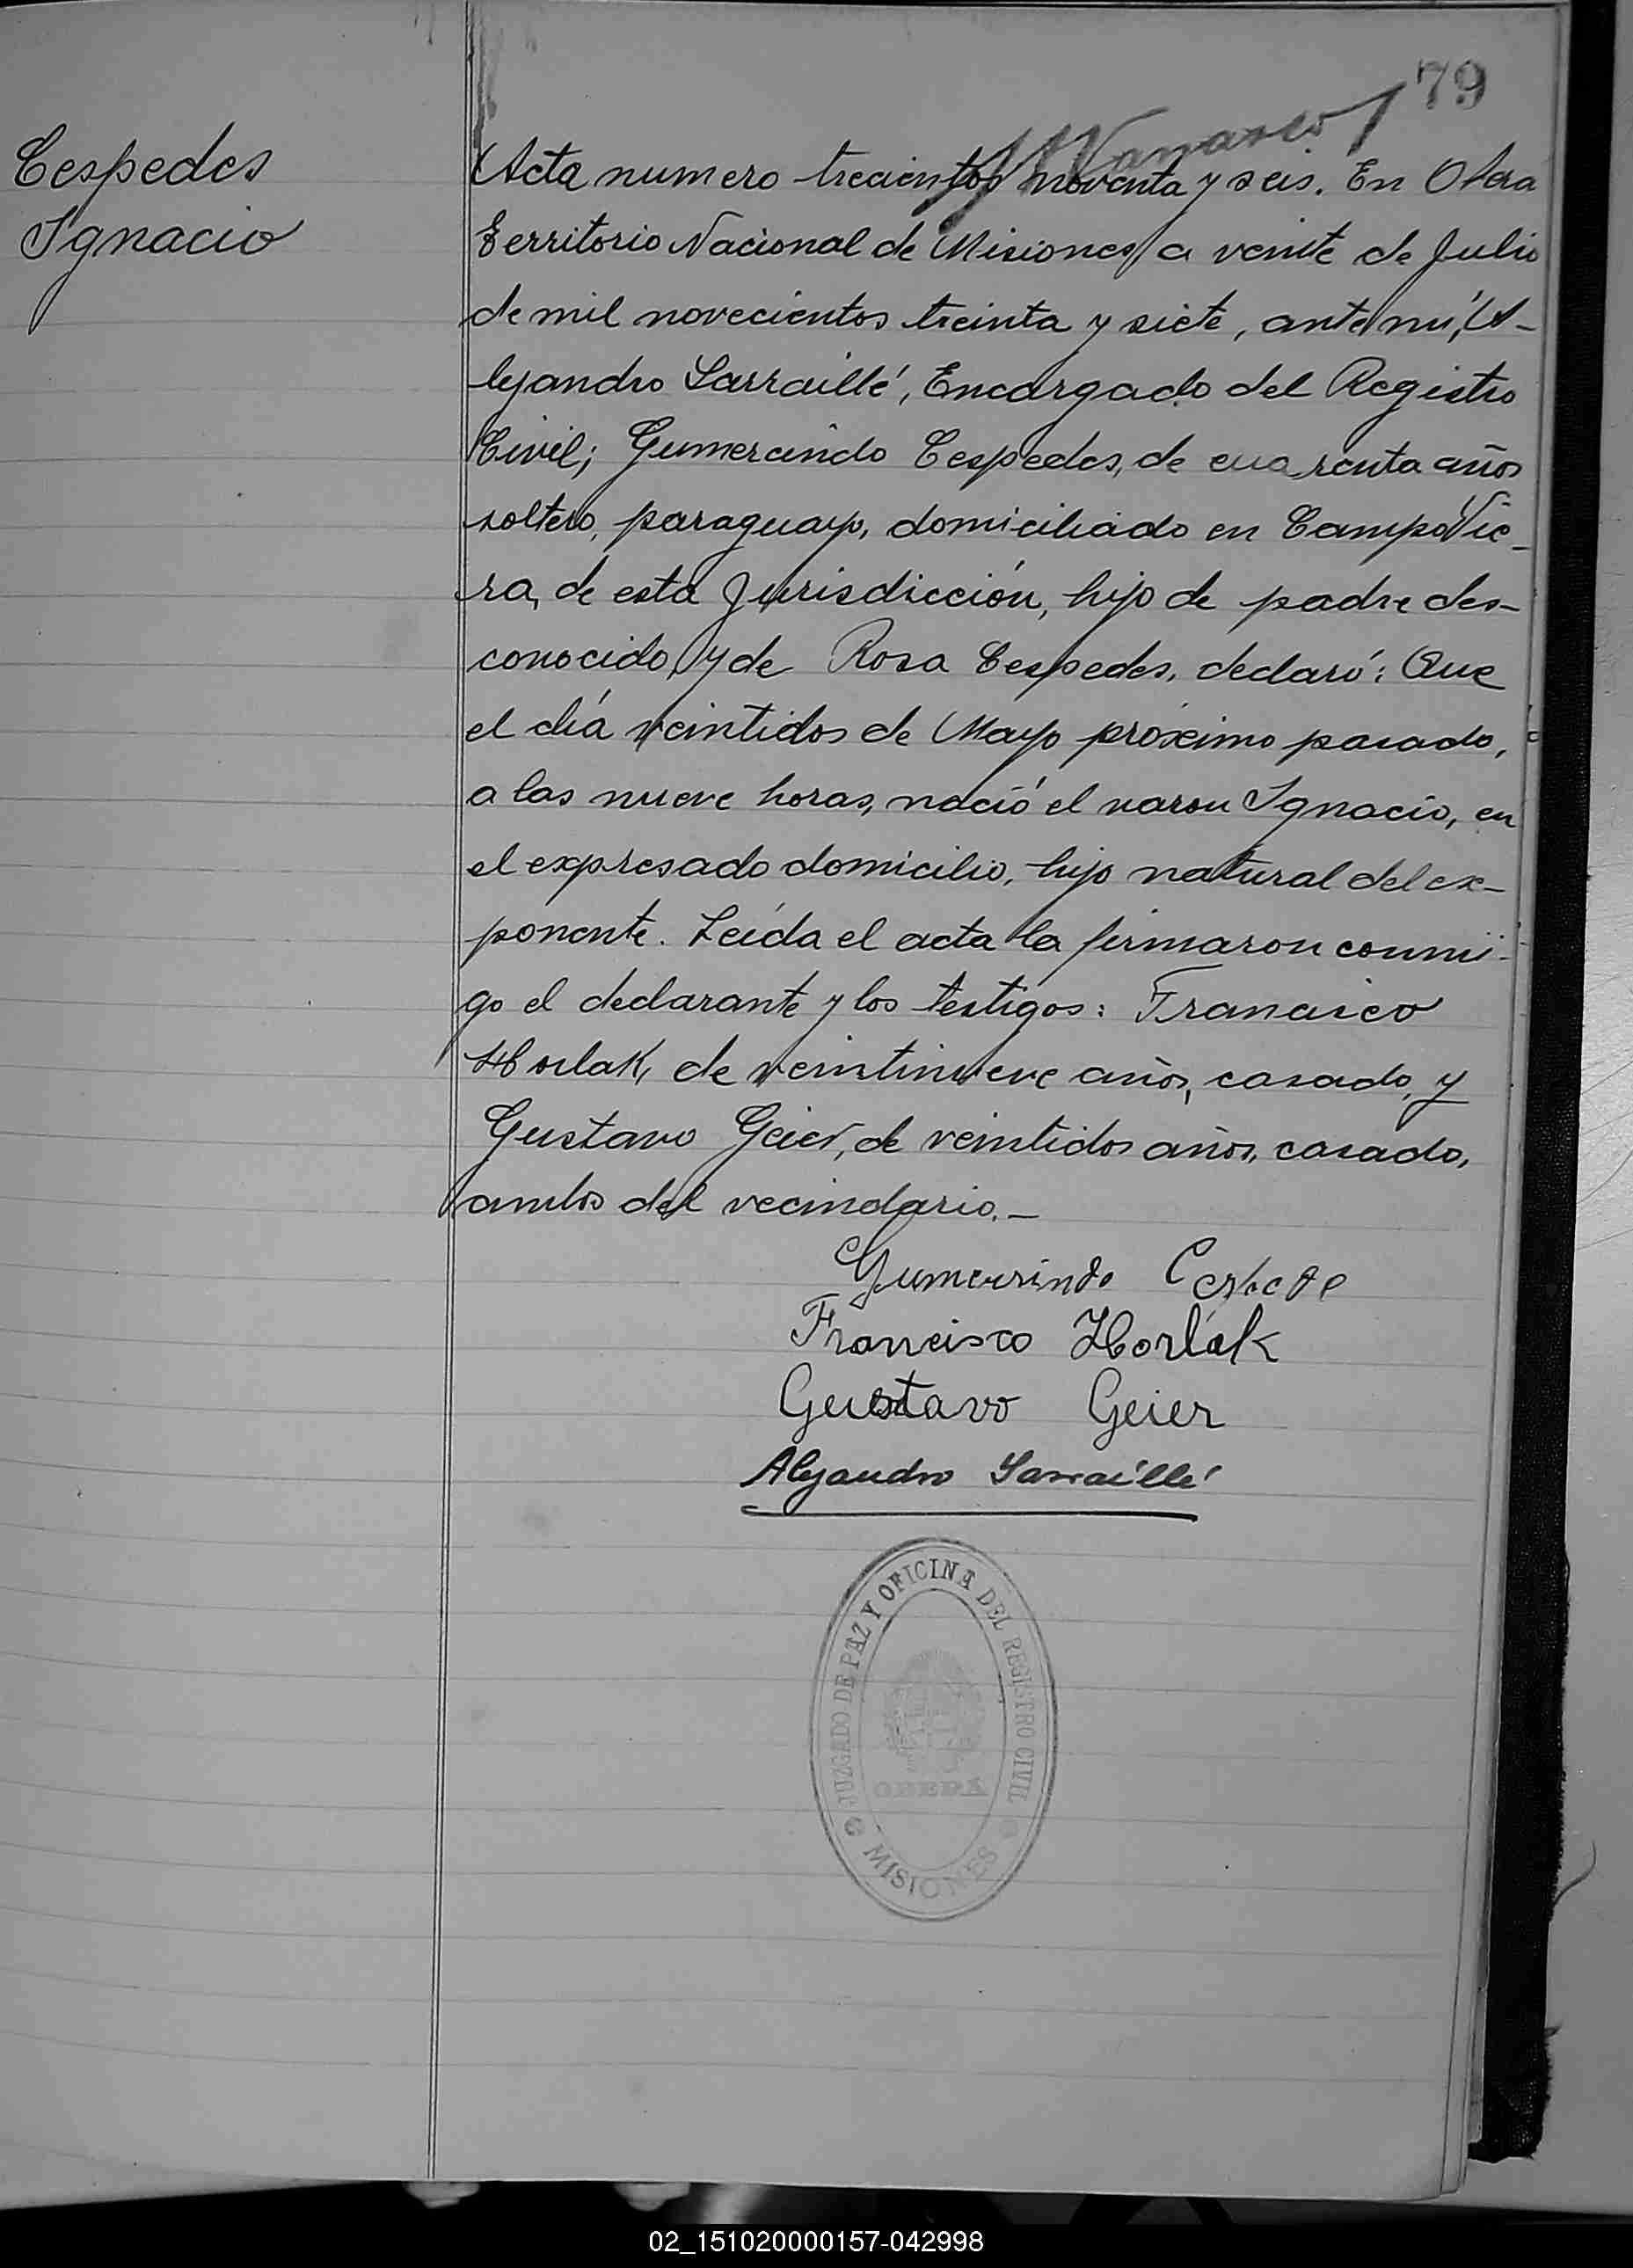 79
Cespedes
Ignacio
Acta numero trecientos noventa y seis. En Obera
Territorio Nacional de Misiones, a veinte de Julio
de mil novecientos treinta y siete, ante mí, A-
lejandro Sarraillé, Encargado del Registro
Civil; Gumercindo Cespedes, de cuarenta años
soltero, paraguayo, domiciliado en Campo Vie-
ra, de esta Jurisdicción, hijo de padre des-
conocido, y de Rosa Cespedes, declaró: Que
el día veintidos de Mayo próximo pasado,
a las nueve horas, nació el varon Ignacio, en
el expresado domicilio, hijo natural del ex-
ponente. Leída el acta la firmaron conmi-
go el declarante y los testigos: Francisco
Horlak, de veintinueve años, casado, y
Gustavo Geier, de veintidos años, casado,
ambos del vecindario.—
Gumersindo
Francisco Horlak
Gustavo Geier
Alejandro Sarraillé
JUZGADO DE PAZ Y OFICINA DEL REGISTRO CIVIL
OBERÁ
MISIONES
02_151020000157-042998